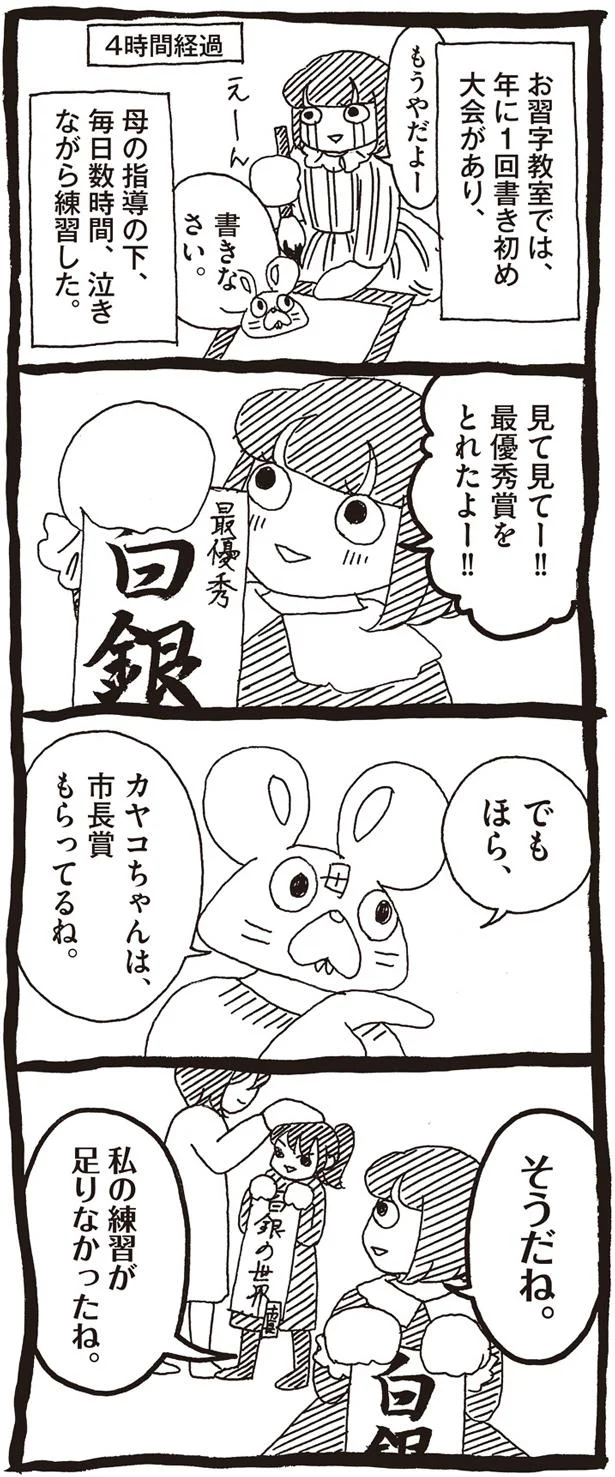 お習字教室では、
年に1回書き初め
大会があり、
もうやだよー
4時間経過
えーん
書きな
さい。
母の指導の下、
毎日数時間、泣き
ながら練習した。
見て見てー!!
最優秀賞を
とれたよー!!
最優秀
白銀
でも
ほら、
カヤコちゃんは、
市長賞
もらってるね。
そうだね。
白銀の世界
市長
白銀
私の練習が
足りなかったね。